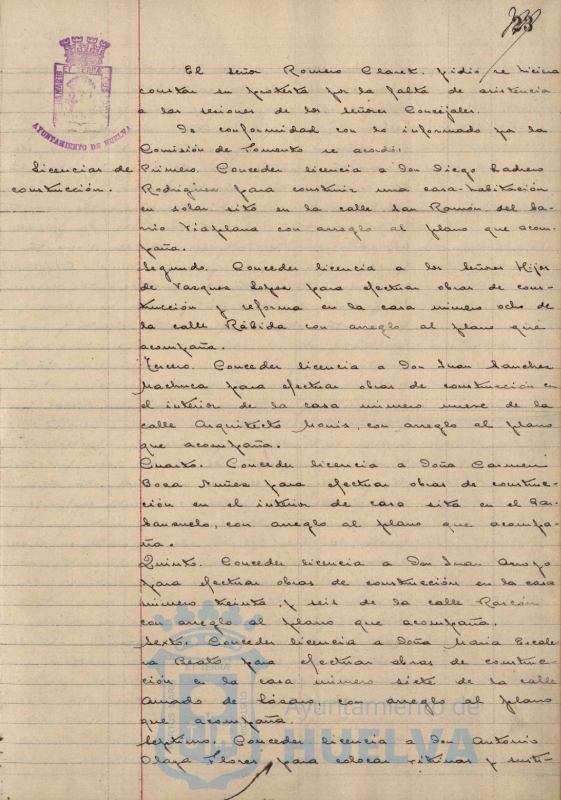 23
El señor Romero Claret, pidió se hiciera
constar su protesta por la falta de asistencia
a las sesiones de los señores Concejales.
De conformidad con lo informado por la
Comisión de Fomento se acordó:
Licencias de
construcción.
Primero. Conceder licencia a Don Diego
Rodríguez para construir una casa-habitación
en solar sito en la calle San Ramón del ba-
rrio Viaplana con arreglo al plano que acom-
paña.
Segundo. Conceder licencia a los Señores Hijos
de Vazquez Lopez para efectuar obras de cons-
trucción y reforma en la casa número ocho de
la calle Rábida con arreglo al plano que
acompaña.
Tercero. Conceder licencia a Don Juan Sanchez
para efectuar obras de construcción en
el interior de la casa número nueve de la
calle Arquitecto Monis, con arreglo al plano
que acompaña.
Cuarto. Conceder licencia a Doña Carmen
Boza Nuñez para efectuar obras de construc-
ción en el interior de casa sita en el
con arreglo al plano que acompa-
ña.
Quinto. Conceder licencia a Don Juan Arroyo
para efectuar obras de construcción en la casa
número treinta y seis de la calle Rascón
con arreglo al plano que acompaña.
Sexto. Conceder licencia a Doña Maria Escale-
ra Beato para efectuar obras de construc-
ción en la casa número siete de la calle
Amado de Lázaro, con arreglo al plano
que acompaña.
Septimo. Conceder licencia a Don Antonio
Olaya Flores para colocar vitrinas y susti-
AYUNTAMIENTO DE HUELVA
Ayuntamiento de
HUELVA